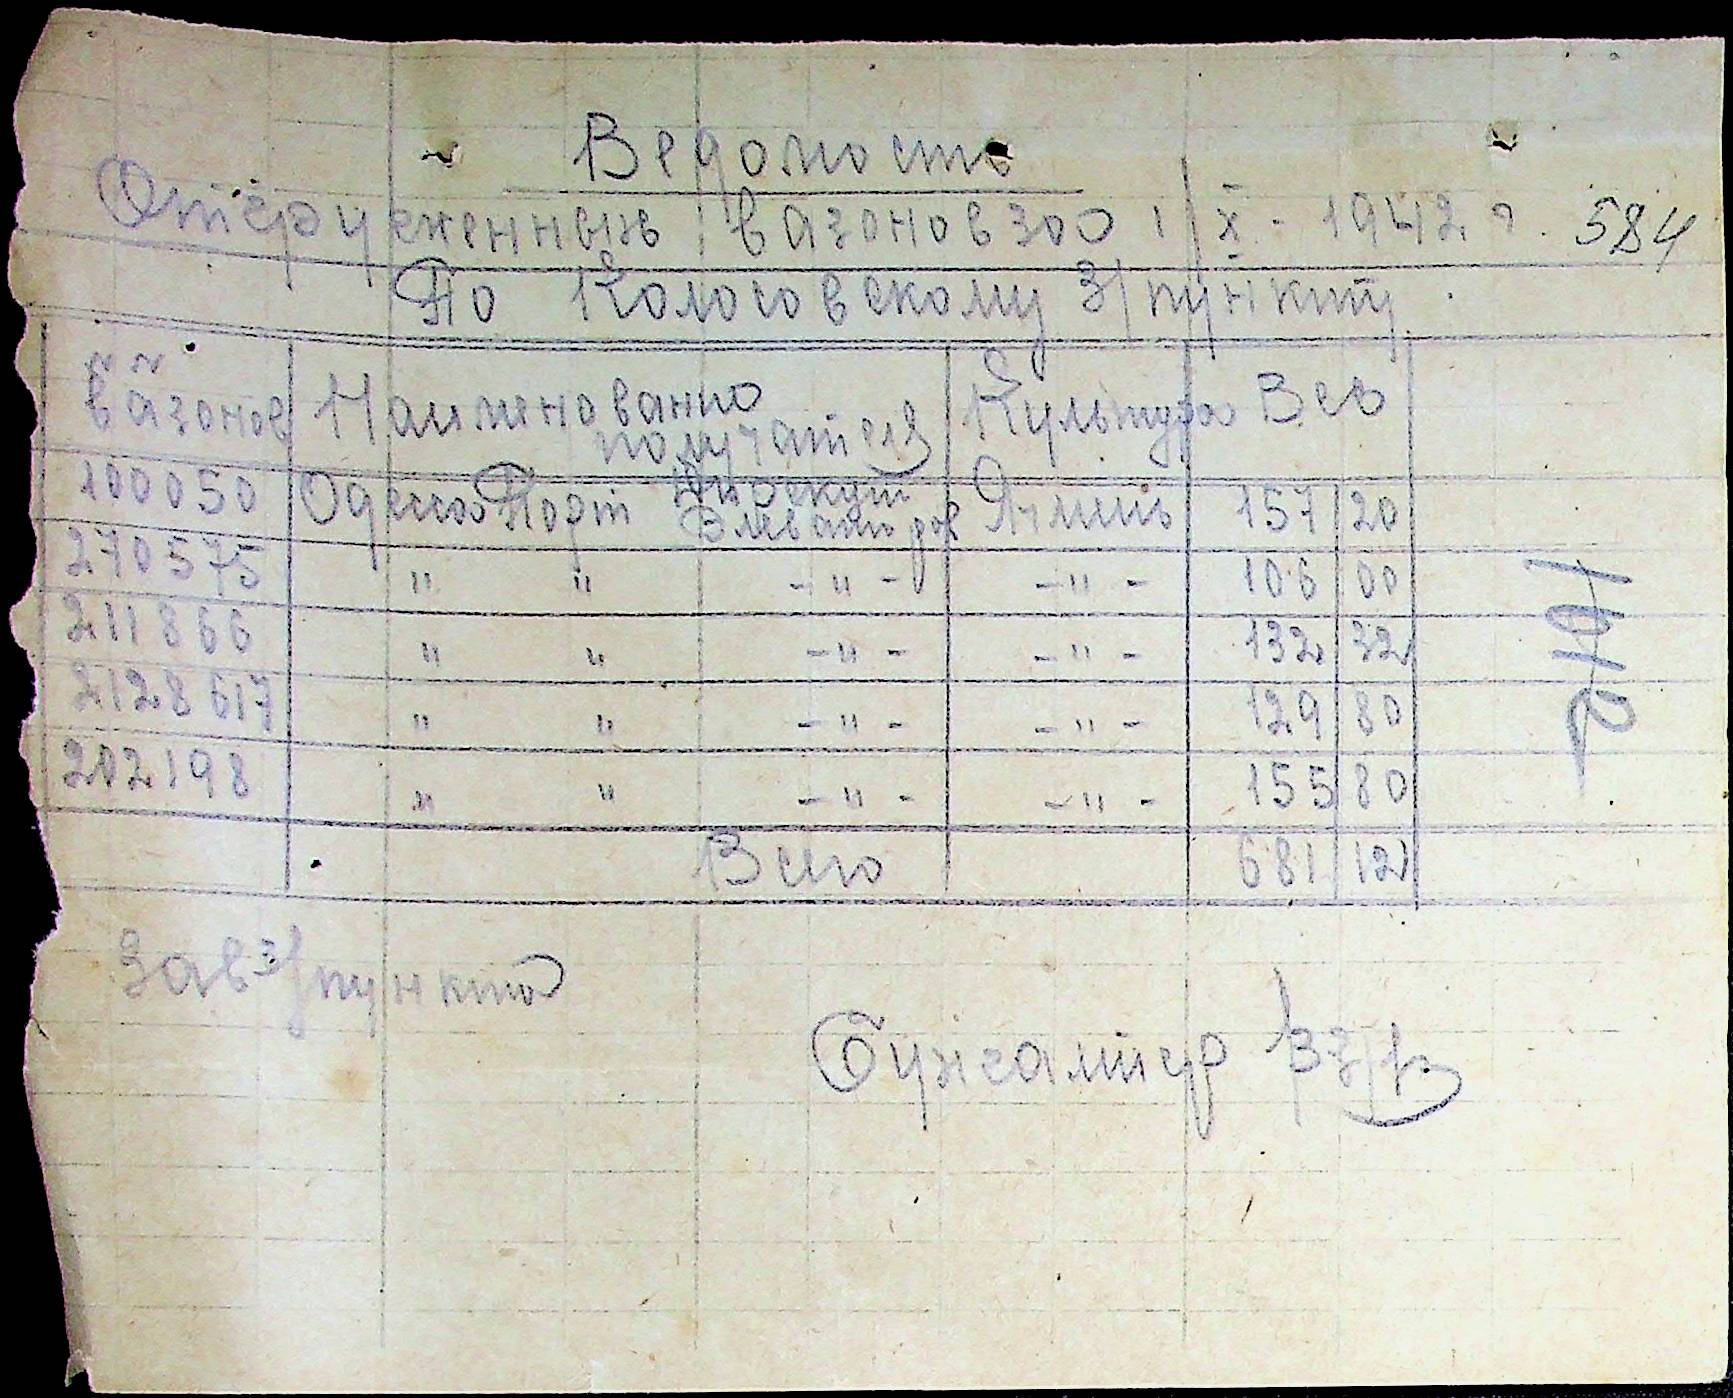 Ведомость
Отгруженных вазонов зоо 1/X - 1942 г. 584
По Колосовскому З/пункту
№ №
вазонов Наименованио получателя Культура Вес
100050 Одесса Порт Дирекции Элеваторов Ячмень 157 20
270575 " " -"- -"- 106 00
211866 " " -"- -"- 132 32
2128617 " " -"- -"- 129 80
202198 " " -"- -"- 155 80
Всего 681 12
Зав з/пункта
Бухгалтер